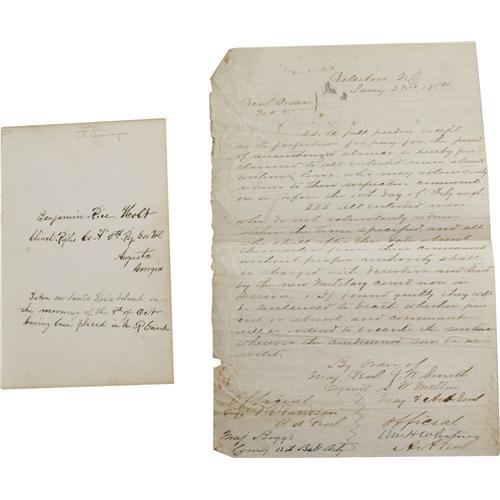 Benjamin Rice Holt
Clinch Rifles Co A 5th Reg Geo Vol
Augusta
Georgia
Taken on Santa Rosa Island on
the morning of the 9th of Oct
having been placed in the R Guard
Goldsboro NC
Genl Orders
No
A full pardon except
as to forfeiture of pay for the period
of unauthorized absence is hereby pro
claimed to all enlisted men absent
without leave, who may voluntarily
return to their respective commands
on or before the 1st day of Feby
All enlisted men
who do not voluntarily return
within the time specified, and all
who shall after this date absent
themselves from their commands
without proper authority shall
be charged with desertion and tried
by the new Military court now in
session. If found guilty they will
be sentenced to death
and commanders
will be ordered to execute the sentence
wherever the condemned can be ar
rested.
By Order of
Maj Genl G W Smith
Official
A A Genl
Official
Wm H Whitney
Maj Boggs
Comdg 12th Batt Arty
A A Genl